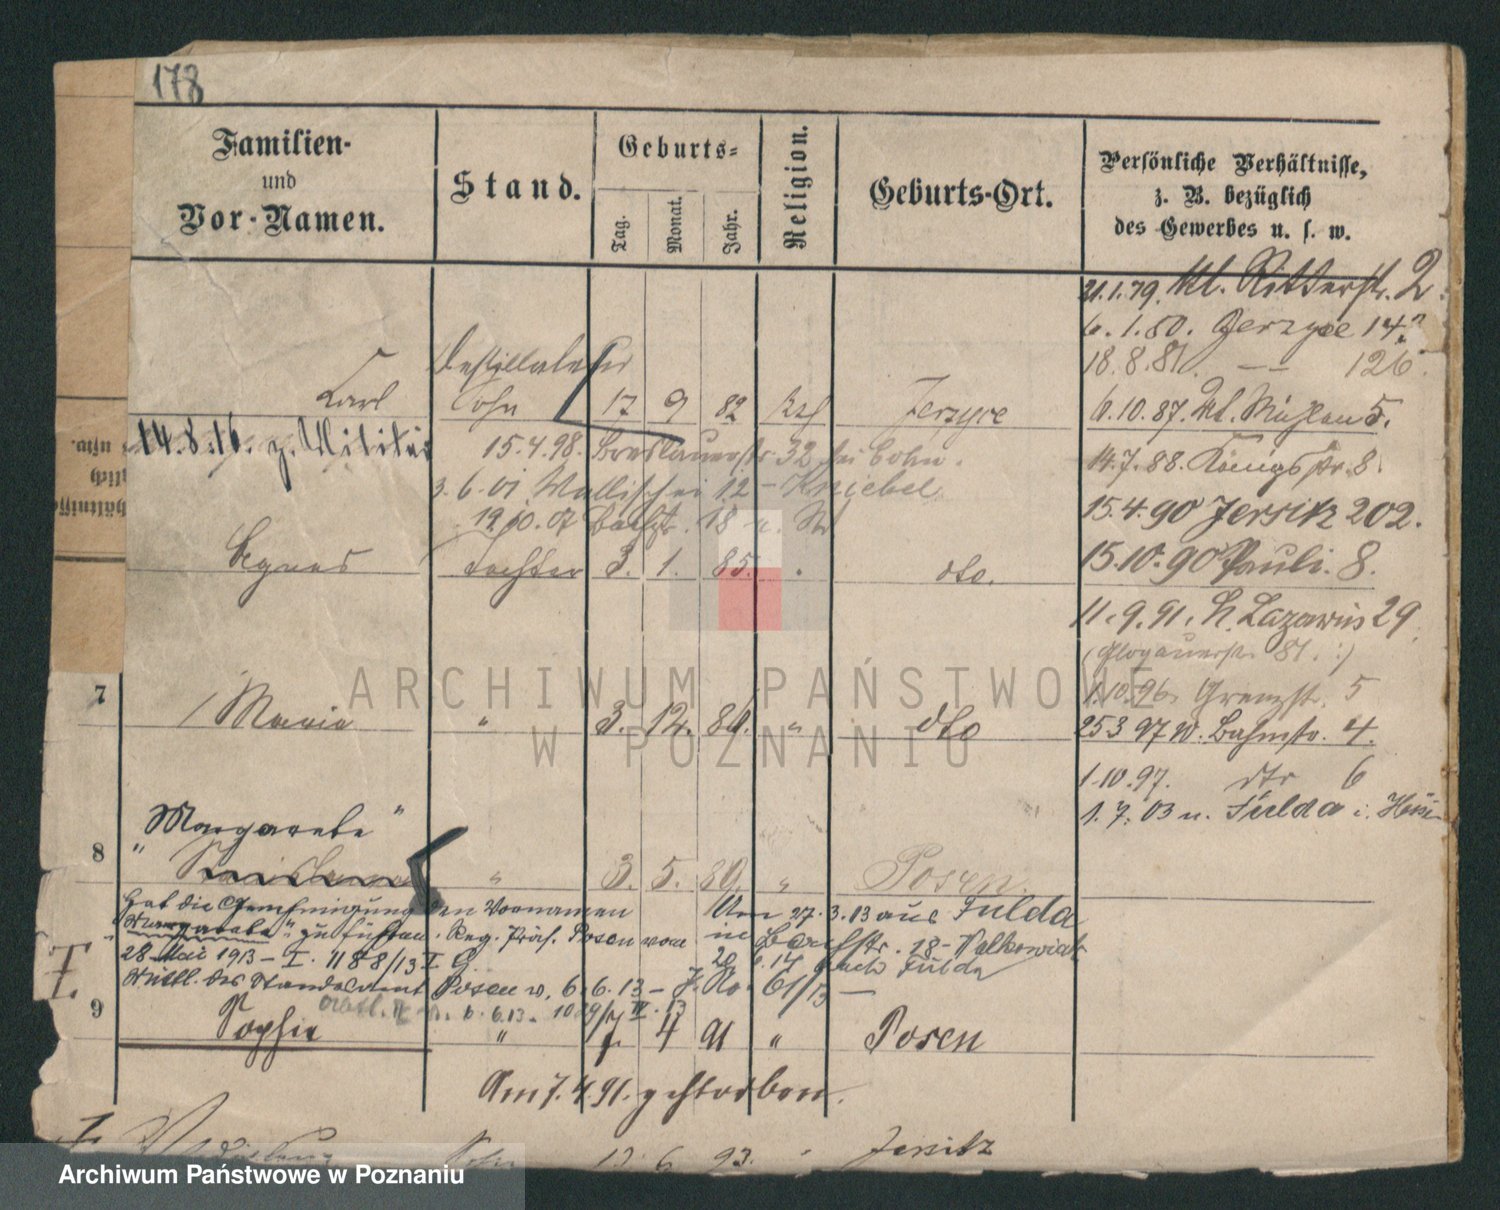 178
Familien- und Vor-Namen.
Stand.
Geburts- Tag. Monat. Jahr.
Religion.
Geburts-Ort.
Persönliche Verhältnisse, z. B. bezüglich des Gewerbes u. s. w.
21.1.79. kl. Ritterstr. 2.
6.1.80. Jerzyce 14
18.8.81. — 126.
Destillateur
Carl Sohn 17 9 82 kath Jerzyce
6.10.87. kl. Mühlen 5.
14.8.16. z. Militär
15.4.98. Breslauerstr 32 bei Cohn.
14.7.88. Königstr. 8.
3.6.01 Wallischei 12 - Kniebel
15.4.90 Jersitz 202.
19.10.07
Agnes Tochter 3. 1. 85. dto.
15.10.90 Pauli. 8.
11.9.91. St. Lazarus 29.
(Glogauerstr. 81.:)
1.10.96. Grenzstr. 5
7 Maria " 3. 12. 86. " dto
25 3 97 W. Bahnstr. 4.
1.10.97. dto 6
1.7.03 n. Fulda i. Hessen
"Margarete"
8 " 3. 5. 89. " Posen.
Hat die Genehmigung den Vornamen
"Margarete" zu führen. Reg. Präs. Posen vom
28 Mai 1913 - I. 1188/13 I G
Mittl. des Standesamt Posen v. 6.6.13 - J. No. 61/13 —
Am 27.3.13 aus Fulda
in Bäckerstr. 18 - Valkowiak
nach Fulda
9 Sophie " 7. 4 91 " Posen
Am 7.4.91. gestorben.
Sohn 13 6 93. " Jersitz
ARCHIWUM PAŃSTWOWE
W POZNANIU
Archiwum Państwowe w Poznaniu